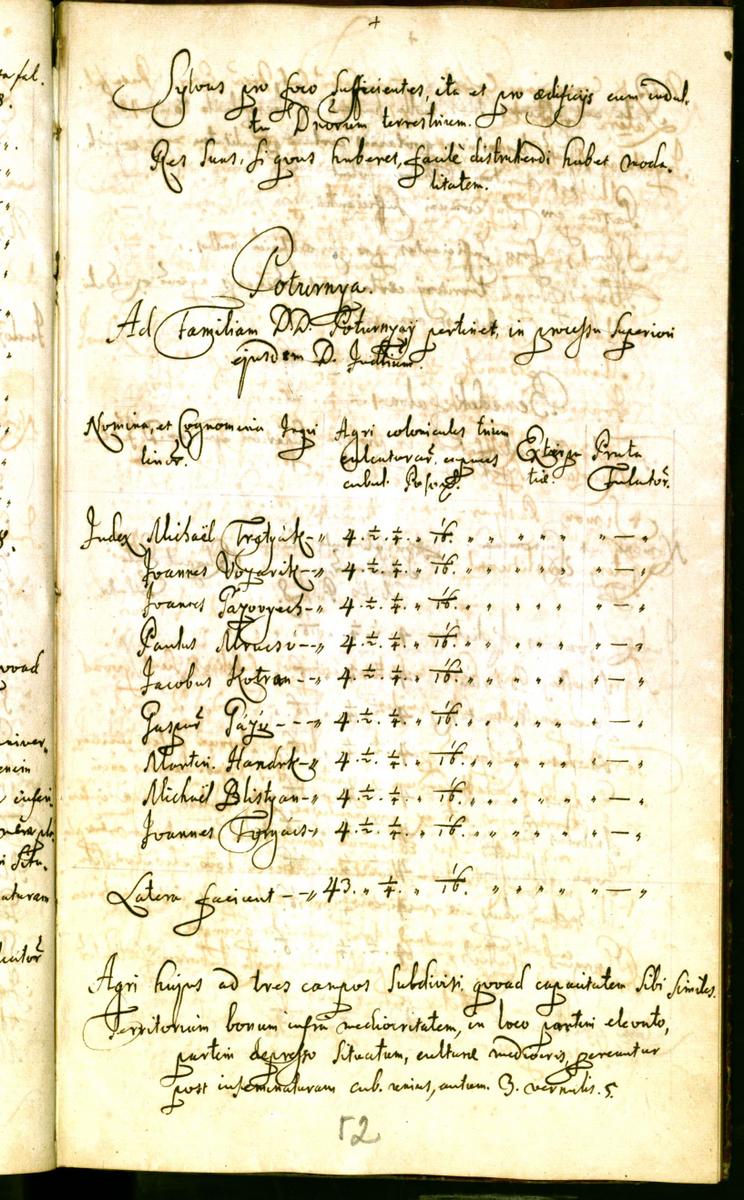 +
Sylvas pro foco sufficientes, ita et pro ædificijs cum indul-
tu Dnorum terrestrium.
Res Suas, si qvas haberet, facilè distrahendi habet moda-
litatem.
Poturnya.
Ad Familiam D.D. Poturnyay pertinet, in processu Superiori
ejusdem D. Judlium.
Nomina, et Cognomina Inqui- Agri coloniales trium Extirpa- Prata
linor. culturarum, capaces tiæ. Falcator.
cubul. Poson.
Index Michaël Trztyák – „ 4. ½. ¼. „ 1/16. „ „ „ „ „ — „
Joannes Vozarik – „ 4. ½. ¼. „ 1/16. „ „ „ „ „ — „
Joannes – „ 4. ½. ¼. „ 1/16. „ „ „ „ „ — „
Paulus – „ 4. ½. ¼. „ 1/16. „ „ „ „ „ — „
Jacobus Kotran – „ 4. ½. ¼. „ 1/16. „ „ „ „ „ — „
Gaspar – – – „ 4. ½. ¼. „ 1/16. „ „ „ „ „ — „
Martin. Handrk – „ 4. ½. ¼. „ 1/16. „ „ „ „ „ — „
Michaël Blistyan – „ 4. ½. ¼. „ 1/16. „ „ „ „ „ — „
Joannes Forgács – „ 4. ½. ¼. „ 1/16. „ „ „ „ „ — „
Latera faciunt – – „ 43. „ ¼. „ 1/16. „ „ „ „ „ — „
Agri hujus ad tres campos subdivisi qvoad capacitatem sibi similes.
Territorium bonum infra mediocritatem, in loco partim elevato,
partim depresso situatum, culturæ mediocris, procreantur
post inseminaturam cub. unius, autum. 3. vernalis. 5.
52